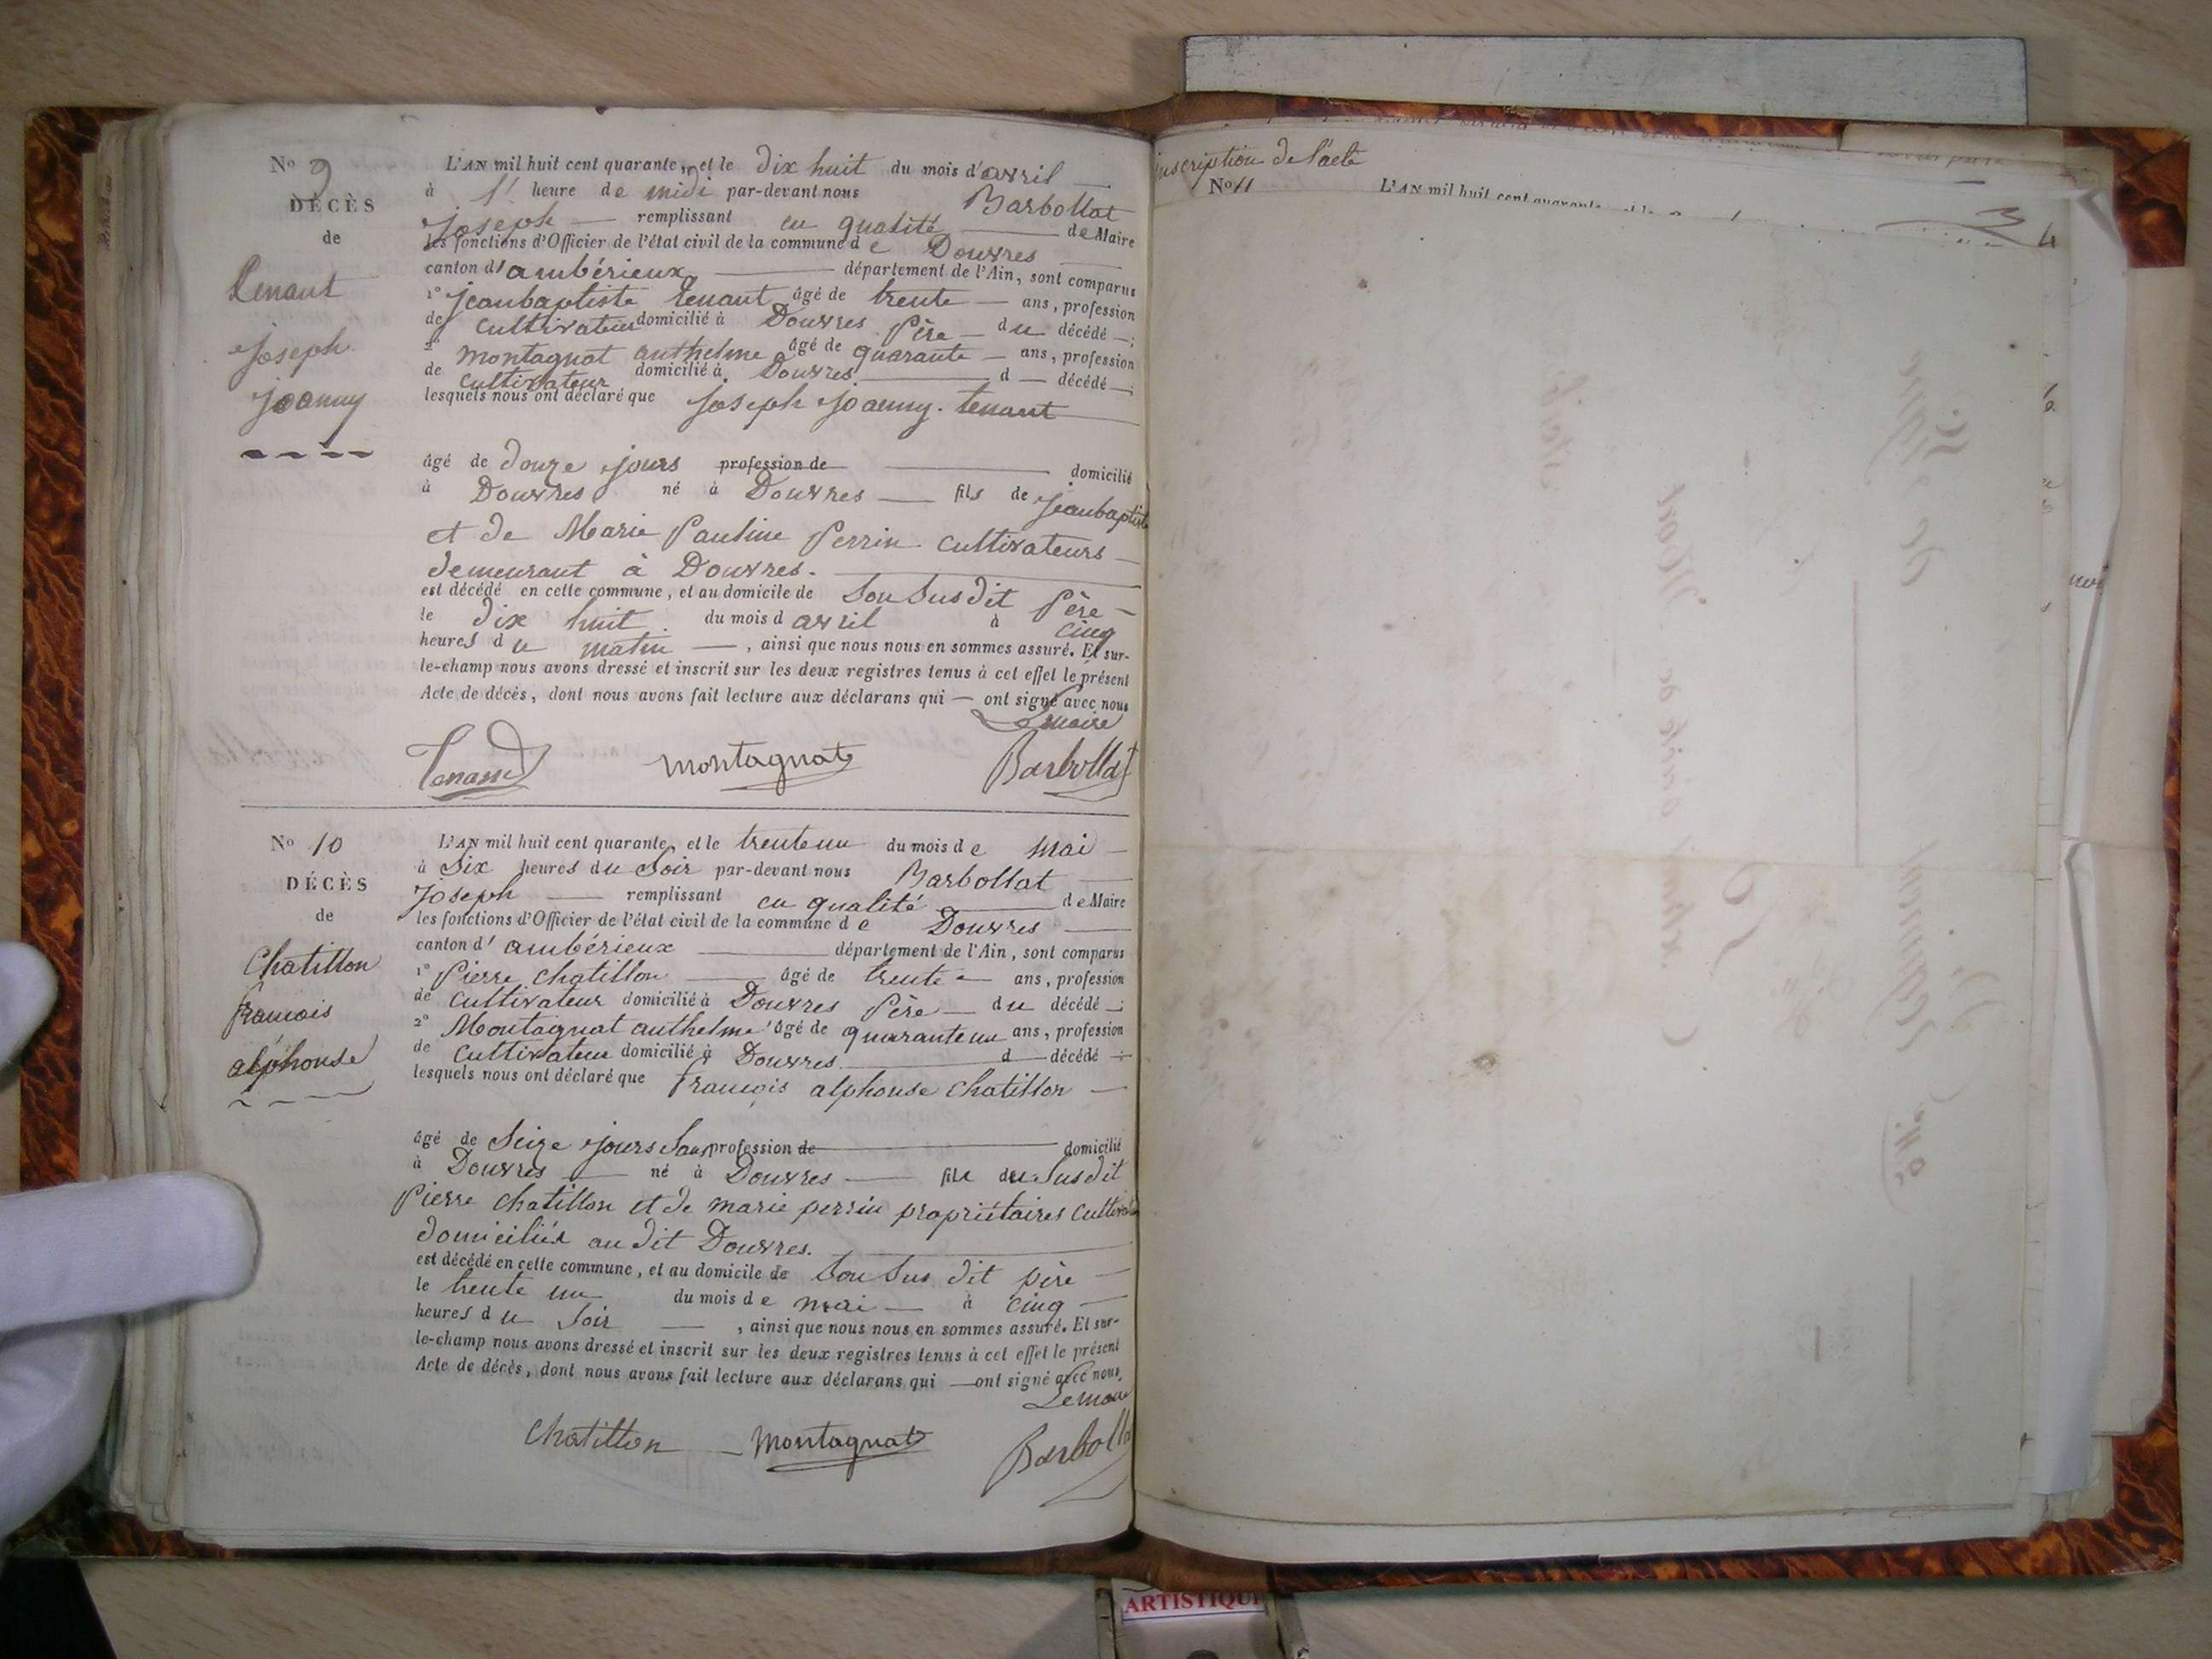 N° 9
DÉCÈS
de
Tenant
Joseph
Joanny
L'AN mil huit cent quarante, et le dix huit du mois d'avril
à 1' heure de midi par-devant nous Barbollat
Joseph remplissant en qualité de Maire
les fonctions d'Officier de l'état civil de la commune de Douvres
canton d'ambérieux département de l'Ain, sont comparus
1° jeanbaptiste tenant âgé de trente ans, profession
de cultivateur domicilié à Douvres Père du décédé;
2° montagnat anthelme âgé de quarante ans, profession
de cultivateur domicilié à Douvres d décédé;
lesquels nous ont déclaré que joseph joanny. tenant
âgé de douze jours profession de domicilié
à Douvres né à Douvres fils de jeanbaptiste
et de Marie Pauline Perrin cultivateurs
demeurant à Douvres.
est décédé en cette commune, et au domicile de son susdit Père
le dix huit du mois d avril à cinq
heures du matin, ainsi que nous nous en sommes assuré. Et sur-
le-champ nous avons dressé et inscrit sur les deux registres tenus à cet effet le présent
Acte de décès, dont nous avons fait lecture aux déclarans qui ont signé avec nous
Le maire
Tenant montagnat Barbollat
N° 10
DÉCÈS
de
Chatillon
francois
alphonse
L'AN mil huit cent quarante, et le trente un du mois de mai
à Six heures du Soir par-devant nous Barbollat
Joseph remplissant en qualité de Maire
les fonctions d'Officier de l'état civil de la commune de Douvres
canton d' ambérieux département de l'Ain, sont comparus
1° Pierre chatillon âgé de trente ans, profession
de cultivateur domicilié à Douvres Père du décédé;
2° Montagnat anthelme âgé de quarante un ans, profession
de cultivateur domicilié à Douvres d décédé
lesquels nous ont déclaré que françois alphonse chatillon
âgé de Seize jours Sans profession de domicilié
à Douvres né à Douvres fils du susdit
Pierre chatillon et de marie perrin propriétaires cultivateurs
domiciliés au dit Douvres.
est décédé en cette commune, et au domicile de son sus dit père
le trente un du mois de mai à cinq
heures du soir, ainsi que nous nous en sommes assuré. Et sur-
le-champ nous avons dressé et inscrit sur les deux registres tenus à cet effet le présent
Acte de décès, dont nous avons fait lecture aux déclarans qui ont signé avec nous,
Le maire
Chatillon montagnat Barbolla
inscription de l'acte
N° 11 L'AN mil huit cent quarante
ARTISTIQUE